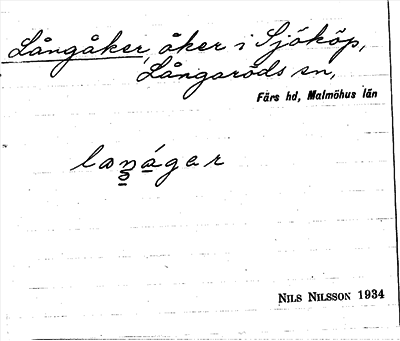 Långåker, åker i Sjököp,
Långaröds sn,
Färs hd, Malmöhus län
laŋágar
NILS NILSSON 1934